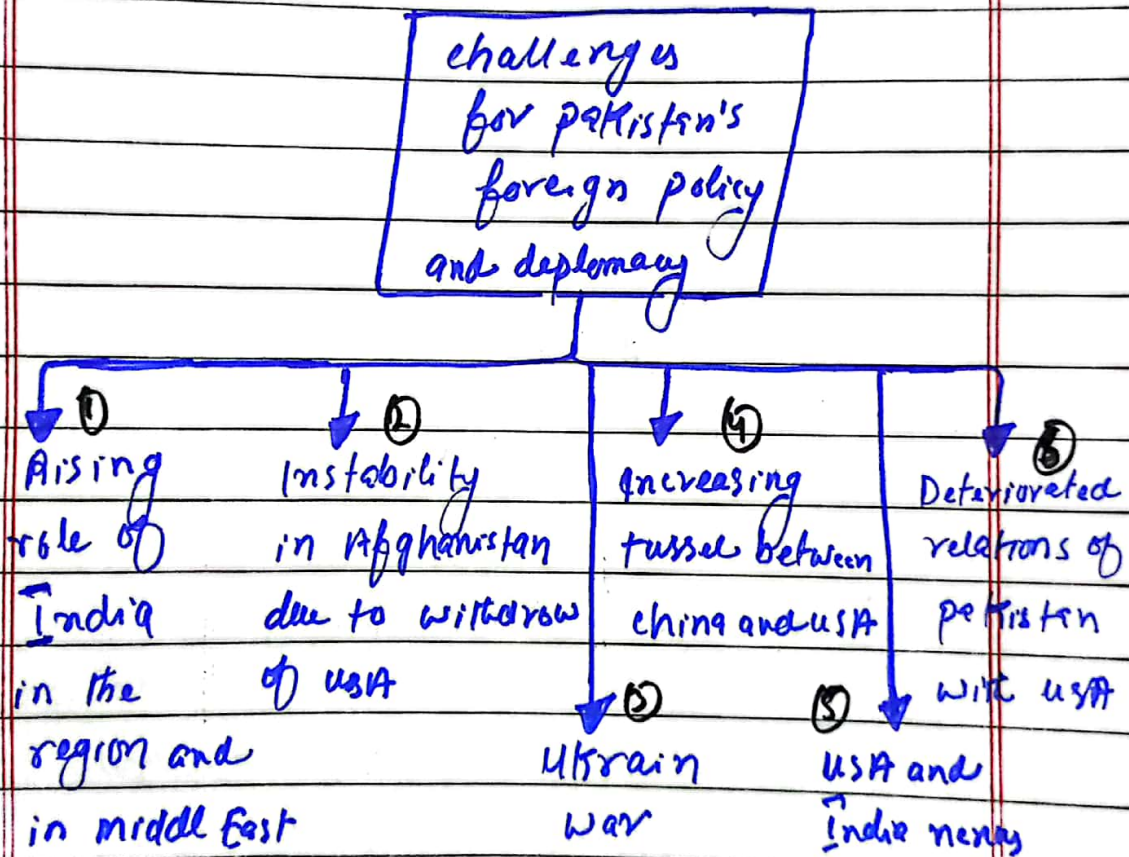 challenges
for pakistan's
foreign policy
and deplomacy
①
Rising
role of
India
in the
region and
in middl East
②
Instability
in Afghanistan
due to withdrow
of USA
③
Ukrain
war
④
Increasing
tussel between
china and USA
⑤
USA and
India nexus
⑥
Deteriorated
relations of
pakistan
with USA